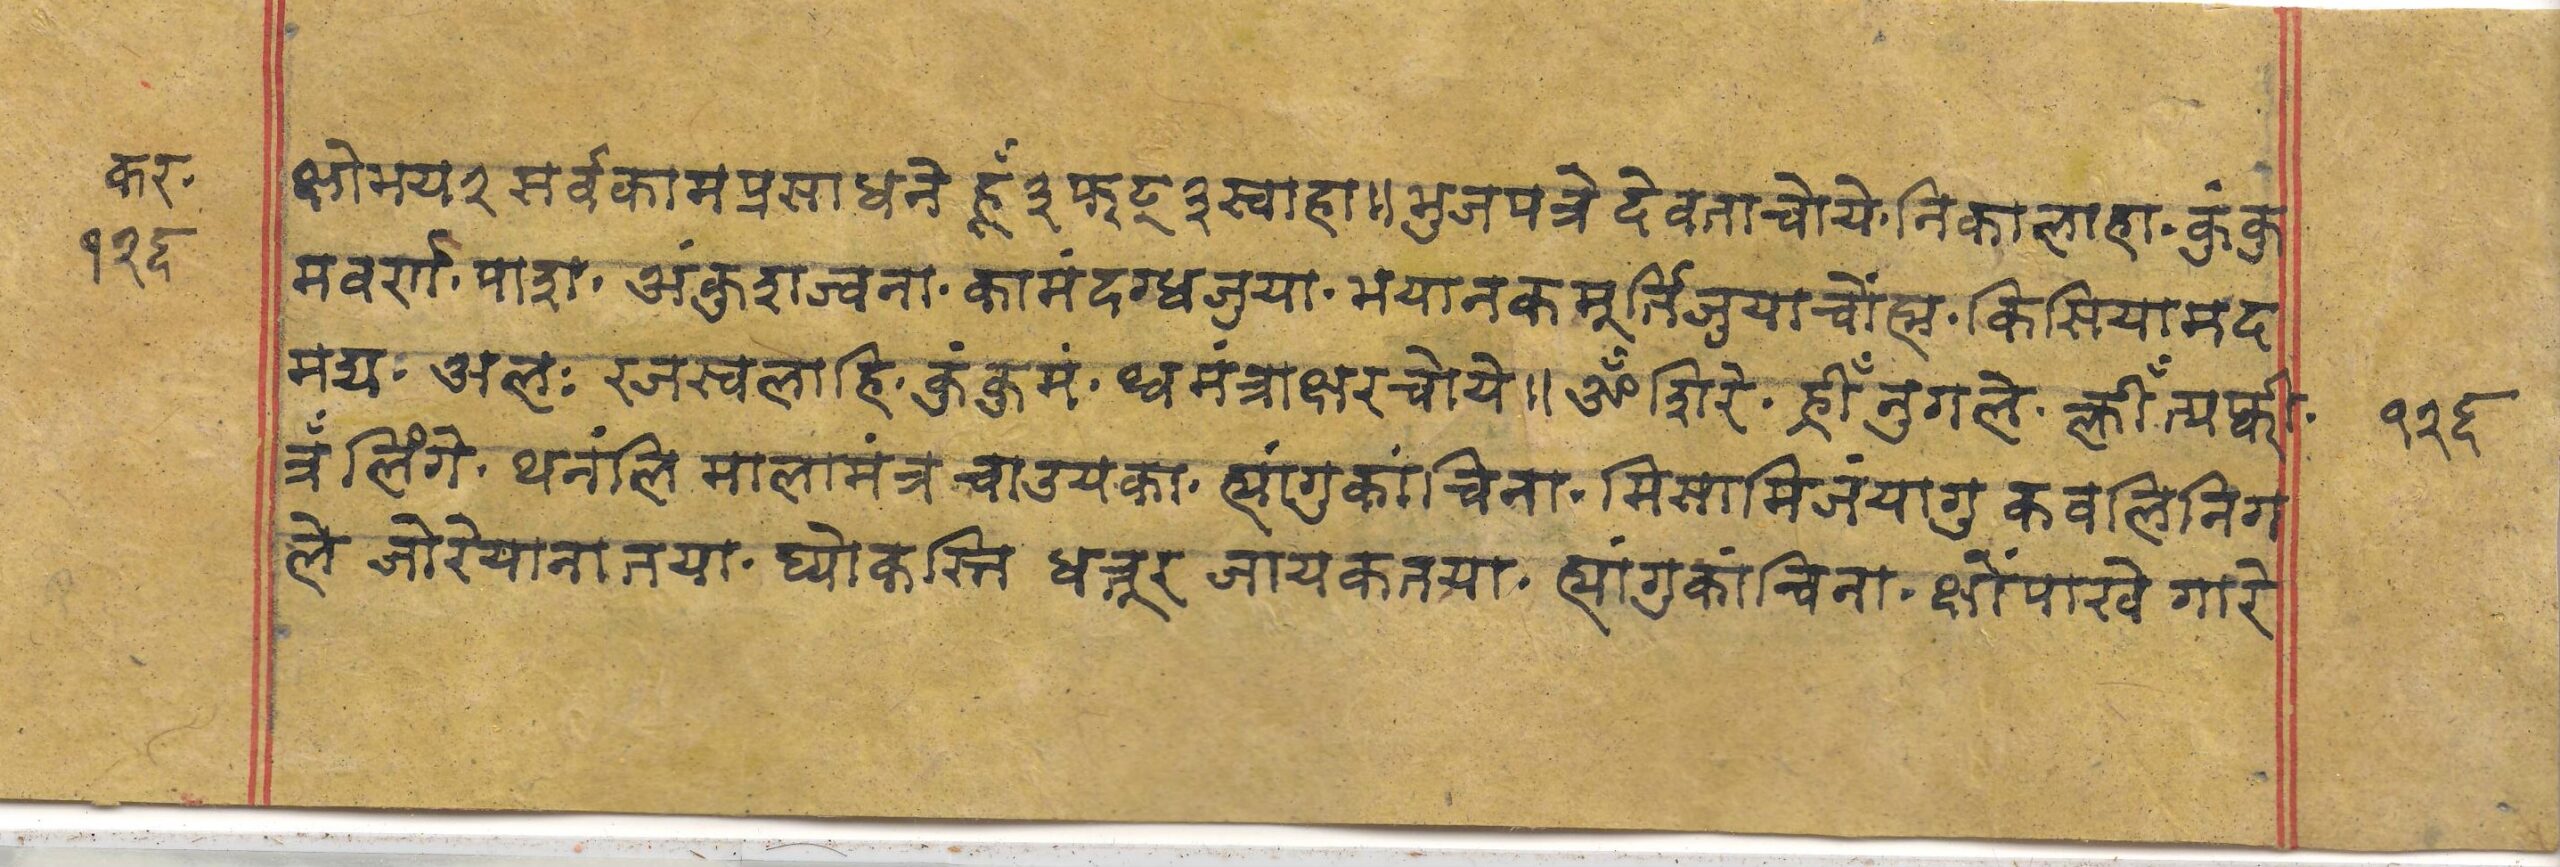 कर॰
१२६
क्षोभय२ सर्वकामप्रसाधने हूँ३फट्३स्वाहा॥भुजपत्रे देवताचोये॰निकालाहा॰कुंकु
मवर्ण॰पाश॰अंकुशज्वना॰कामंदग्धजुया॰भयानकमूर्तिजुयाचोंह्म॰किसियामद
मद्य॰अलः रजस्वलाहि॰कुंकुमं॰थ्वमंत्राक्षरचोये॥ॐशिरे॰ह्रीँनुगले॰क्लीँत्यफी॰
त्रँ लिंगे॰थनंलि मालामंत्र चाउयका॰ह्यांगुकांचिना॰मिसामिजंयागु कवलिनिग
ले जोरेयानातया॰घ्योकस्ति धत्तूर जायकतया॰ह्यांगुकांन्चिना॰क्षोंपाखे गारे
१२६